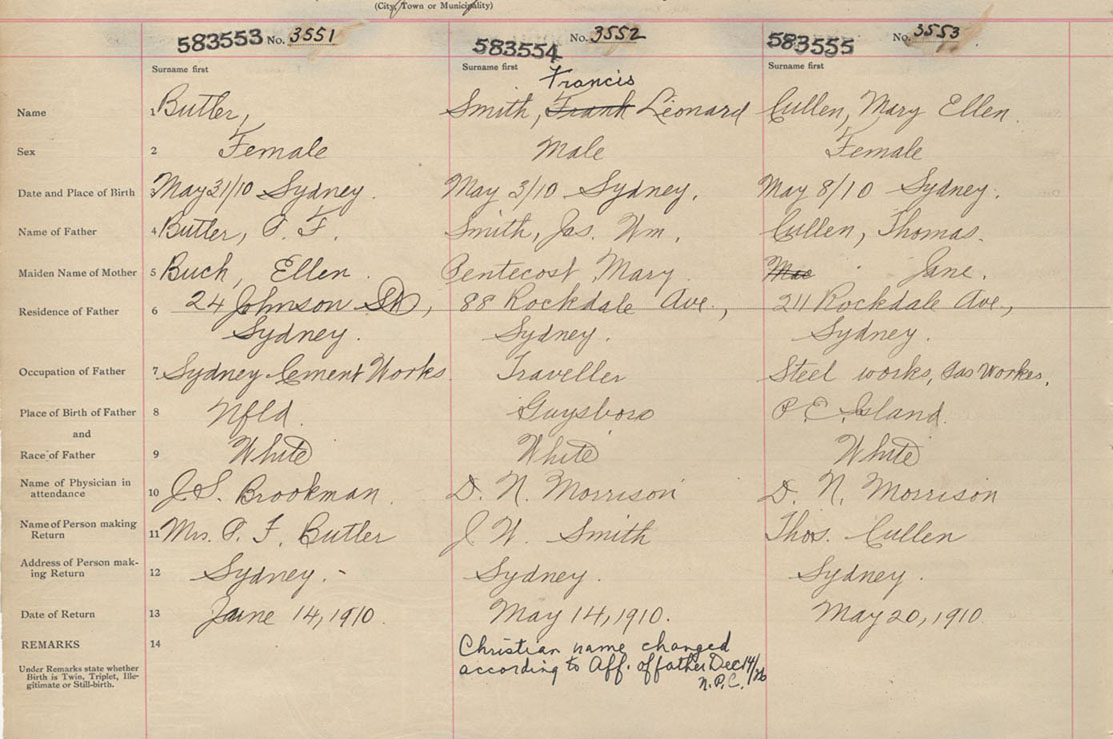 (City, Town or Municipality)
583553 No. 3551 583554 No. 3552 583555 No. 3553
Surname first Surname first Surname first
Francis
Name 1 Butler, Smith, Frank Leonard Cullen, Mary Ellen.
Sex 2 Female Male Female
Date and Place of Birth 3 May 31/10 Sydney. May 3/10 Sydney. May 8/10 Sydney.
Name of Father 4 Butler, P. F. Smith, Jas. Wm. Cullen, Thomas.
Maiden Name of Mother 5 Buck, Ellen. Pentecost Mary. Mac Jane.
Residence of Father 6 24 Johnson St, 88 Rockdale Ave., 211 Rockdale Ave,
Sydney. Sydney. Sydney.
Occupation of Father 7 Sydney Cement Works. Traveller Steel works, Gas Works.
Place of Birth of Father 8 Nfld. Guysboro P. E. Island.
and
Race of Father 9 White White White
Name of Physician in
attendance 10 J. S. Brookman. D. N. Morrison D. N. Morrison
Name of Person making
Return 11 Mrs. P. F. Butler J. W. Smith Thos. Cullen
Address of Person mak-
ing Return 12 Sydney. - Sydney. Sydney.
Date of Return 13 June 14, 1910. May 14, 1910. May 20, 1910.
REMARKS 14 Christian name changed
according to Aff. of father Dec 14/26
N.P.C.
Under Remarks state whether
Birth is Twin, Triplet, Ille-
gitimate or Still-birth.